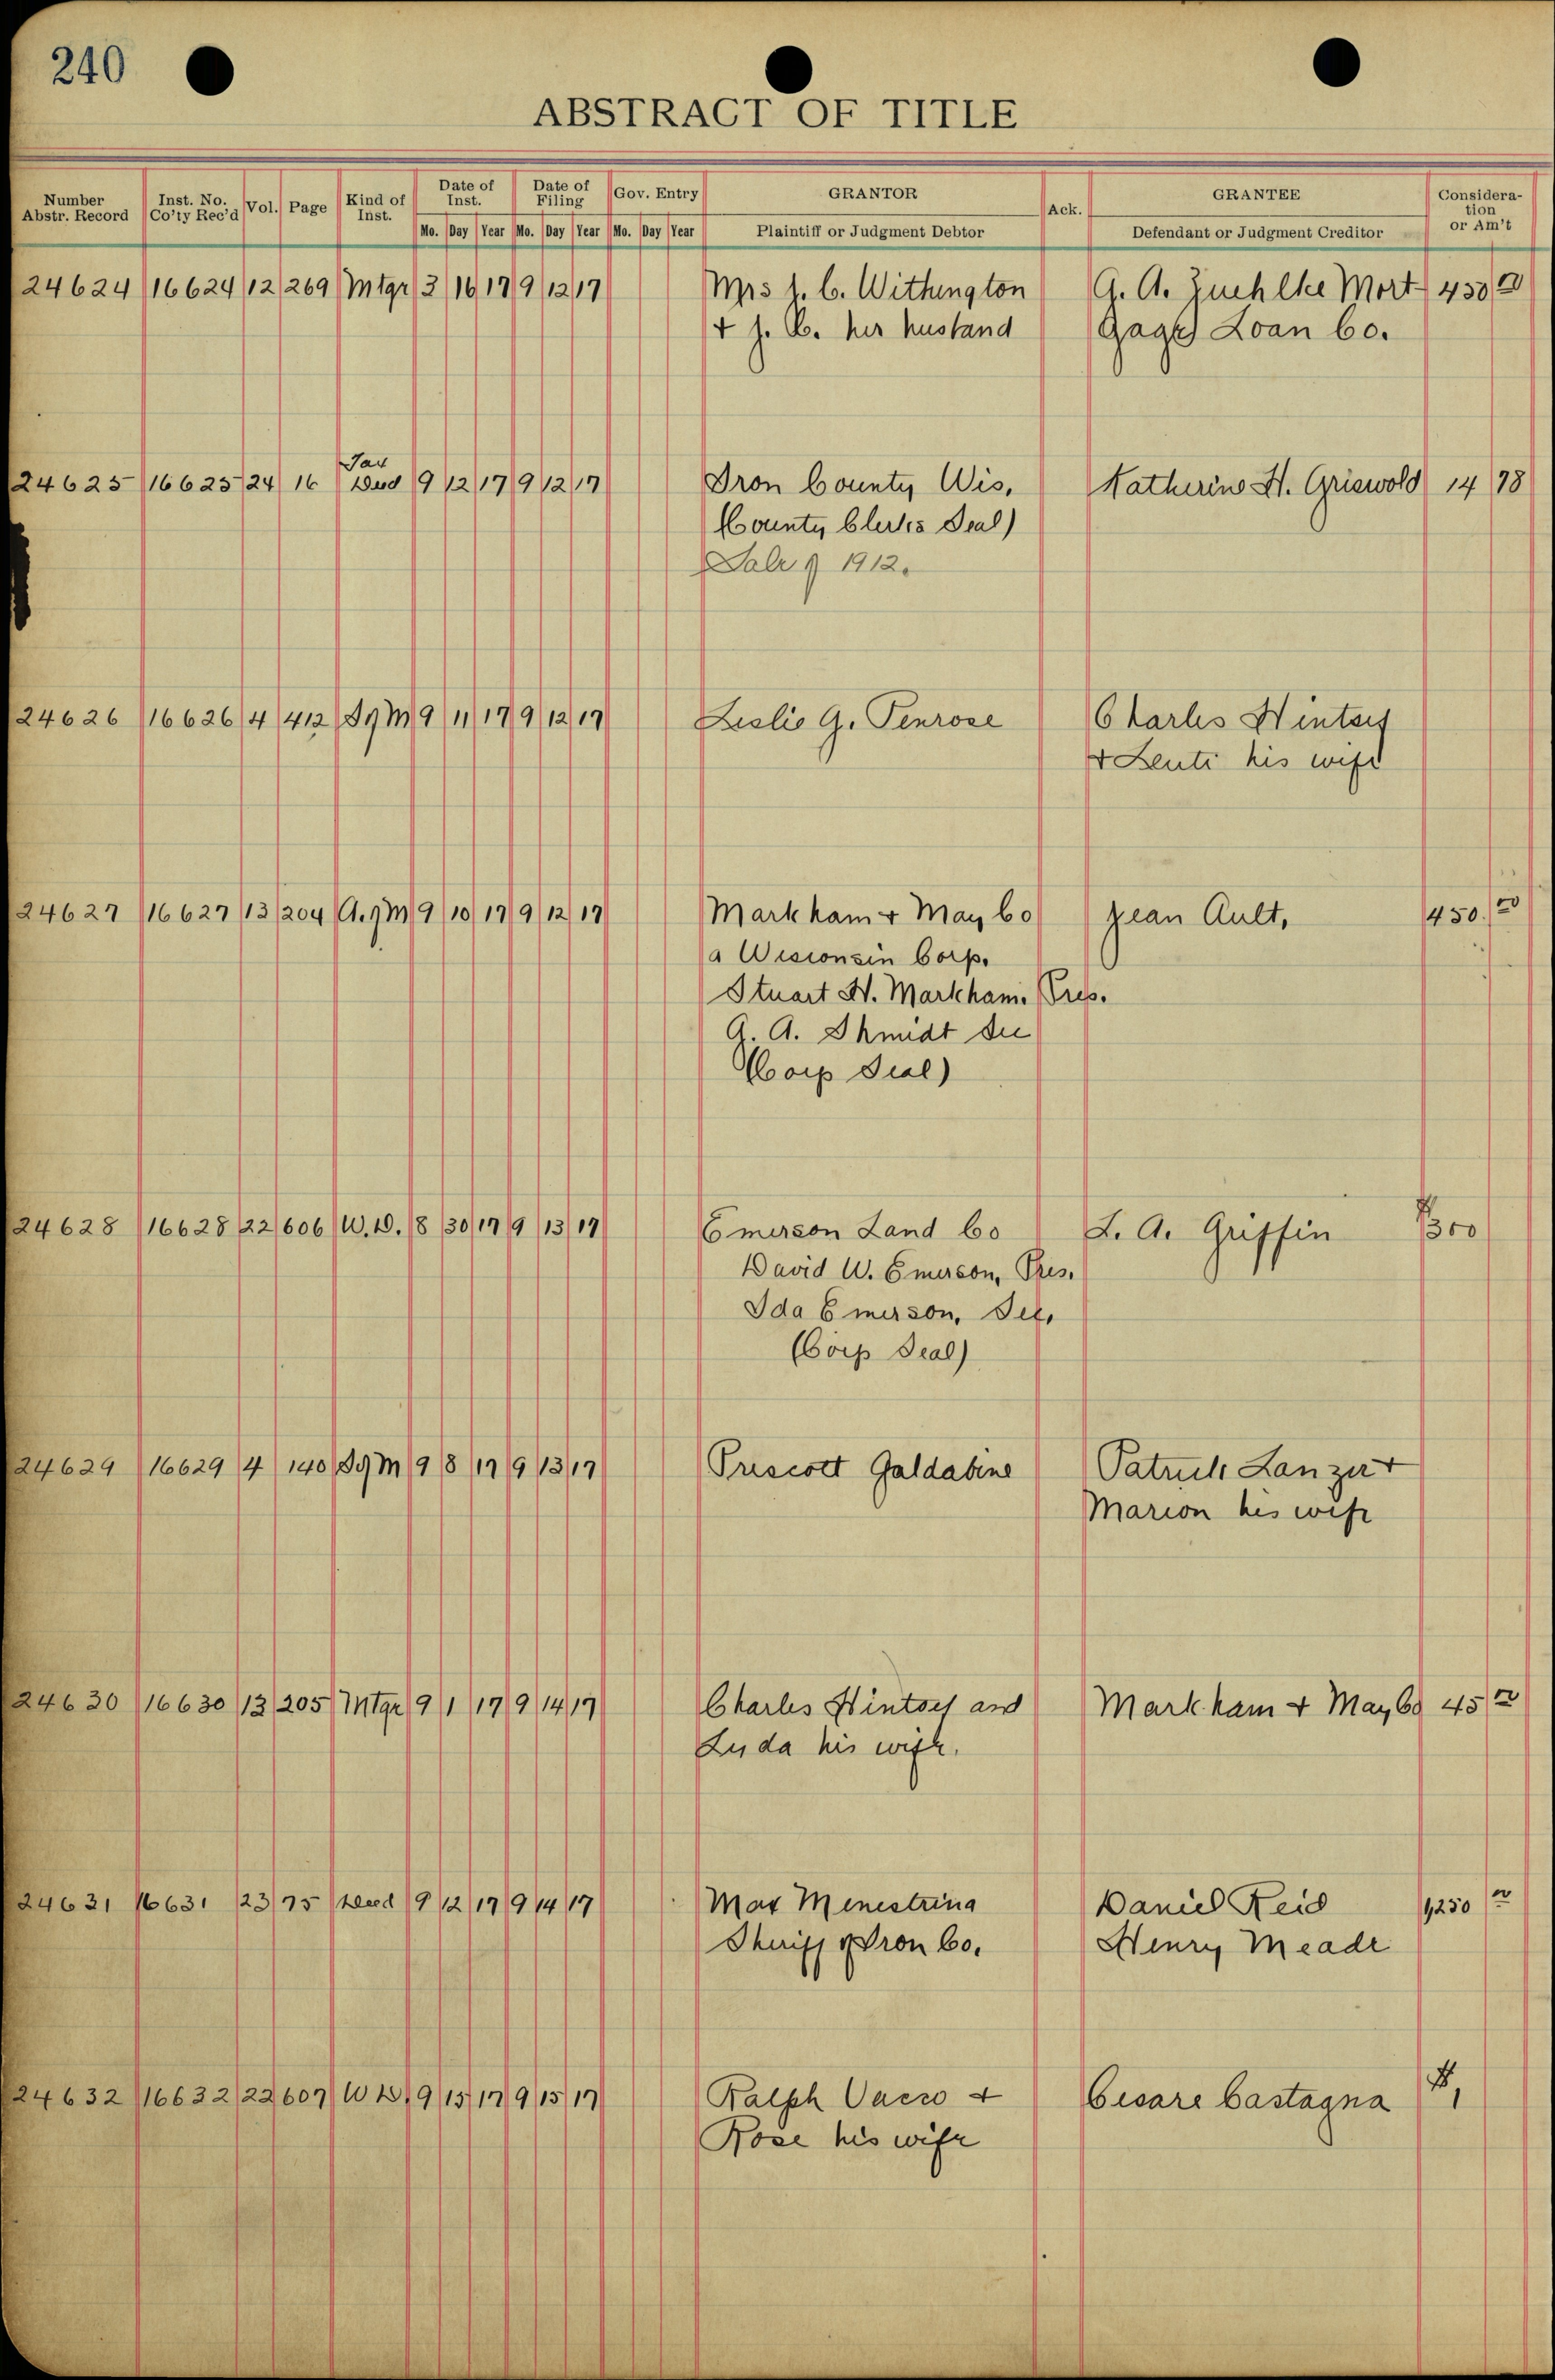 240
ABSTRACT OF TITLE
Number Abstr. Record | Inst. No. Co'ty Rec'd | Vol. | Page | Kind of Inst. | Date of Inst. | Date of Filing | Gov. Entry | GRANTOR | Ack. | GRANTEE | Consideration or Am't
Mo. Day Year Mo. Day Year Mo. Day Year Plaintiff or Judgment Debtor Defendant or Judgment Creditor
24624 16624 12 269 Mtge 3 16 17 9 12 17 Mrs L. C. Withington G. A. Zuehlke Mort 450 00
+ J. C. her husband Gage Loan Co.
Tax
24625 16625 24 16 Deed 9 12 17 9 12 17 Iron County Wis. Katherine H. Griswold 14 78
(County Clerks Seal)
Sale of 1912.
24626 16626 4 412 S of M 9 11 17 9 12 17 Leslie G. Penrose Charles Hintsey
+ Lenti his wife
24627 16627 13 204 A. of M 9 10 17 9 12 17 Markham + May Co Jean Ault, 450. 00
a Wisconsin Corp.
Stuart H. Markham. Pres.
A. A. Shmidt Sec
(Corp Seal)
24628 16628 22 606 W. D. 8 30 17 9 13 17 Emerson Land Co L. A. Griffin 300
David W. Emerson, Pres.
Ida Emerson, Sec.
(Corp Seal)
24629 16629 4 140 S of M 9 8 17 9 13 17 Prescott Galdabine Patrick Lanzer +
Marion his wife
24630 16630 13 205 Mtge 9 1 17 9 14 17 Charles Hintsey and Markham + May Co 45 00
Luda his wife.
24631 16631 23 75 Deed 9 12 17 9 14 17 Max Menestrina Daniel Reid 1,250 00
Sheriff of Iron Co. Henry Meade
24632 16632 22 607 W D. 9 15 17 9 15 17 Ralph Vacco + Cesare Castagna $1
Rose his wife